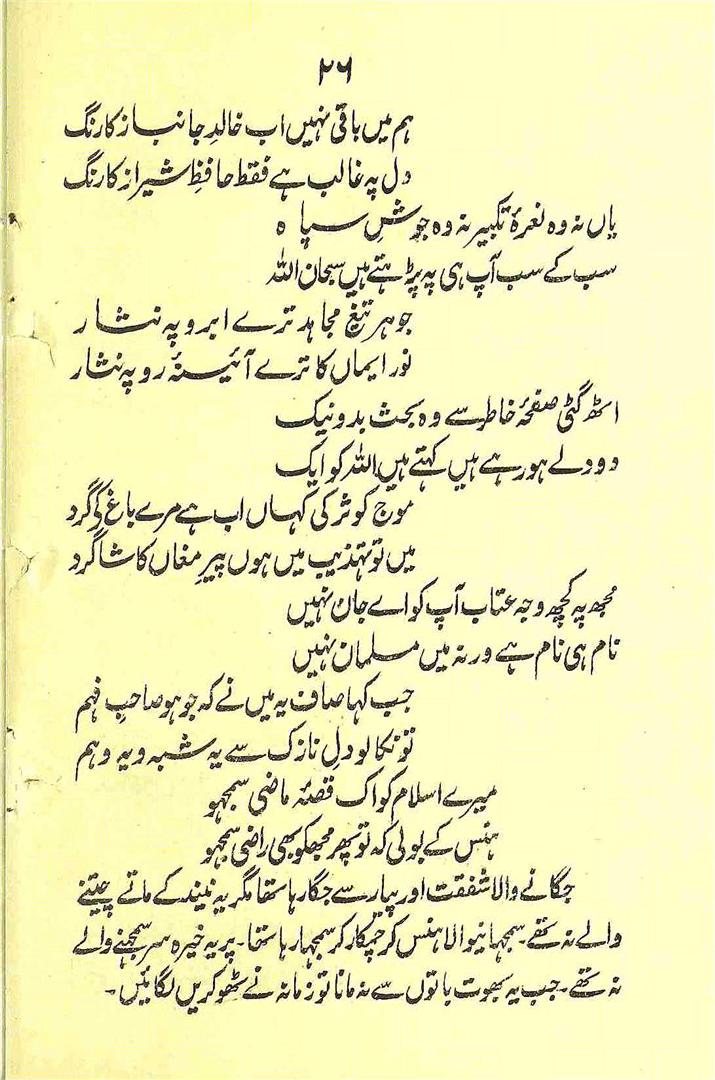 ۲۶
ہم میں باقی نہیں اب خالدِ جانباز کا رنگ
دل پہ غالب ہے فقط حافظِ شیراز کا رنگ
یاں نہ وہ نعرۂ تکبیر نہ وہ جوشِ سپاہ
سب کے سب آپ ہی پہ پڑہتے ہیں سبحان اللہ
جوہر تیغ مجاہد ترے ابرو پہ نثار
نور ایماں کا ترے آئینۂ رو پہ نثار
اٹھ گئی صفحۂ خاطر سے وہ بحث بد و نیک
دو دلے ہو رہے ہیں کہتے ہیں اللہ کو ایک
موج کوثر کی کہاں اب ہے مرے باغ کے گرد
میں تو تہذیب میں ہوں پیرِ مغاں کا شاگرد
مجھ پہ کچھ وجہ عتاب آپ کو اے جان نہیں
نام ہی نام ہے ورنہ میں مسلمان نہیں
جب کہا صاف یہ میں نے کہ جو ہو صاحبِ فہم
تو نکالو دلِ نازک سے یہ شبہ و یہ وہم
میرے اسلام کو اک قصۂ ماضی سمجہو
ہنس کے بولی کہ تو پھر مجھکو بھی راضی سمجہو
جگانے والا شفقت اور پیار سے جگا رہا تھا مگر یہ نیند کے ماتے چیتنے
والے نہ تھے۔ سمجہانیوالا ہنس کر چمکار کر سمجہا رہا تھا۔ پر یہ خیرہ سر سمجہنے والے
نہ تھے۔ جب یہ بھوت باتوں سے نہ مانا تو زمانہ نے ٹھوکریں لگائیں۔